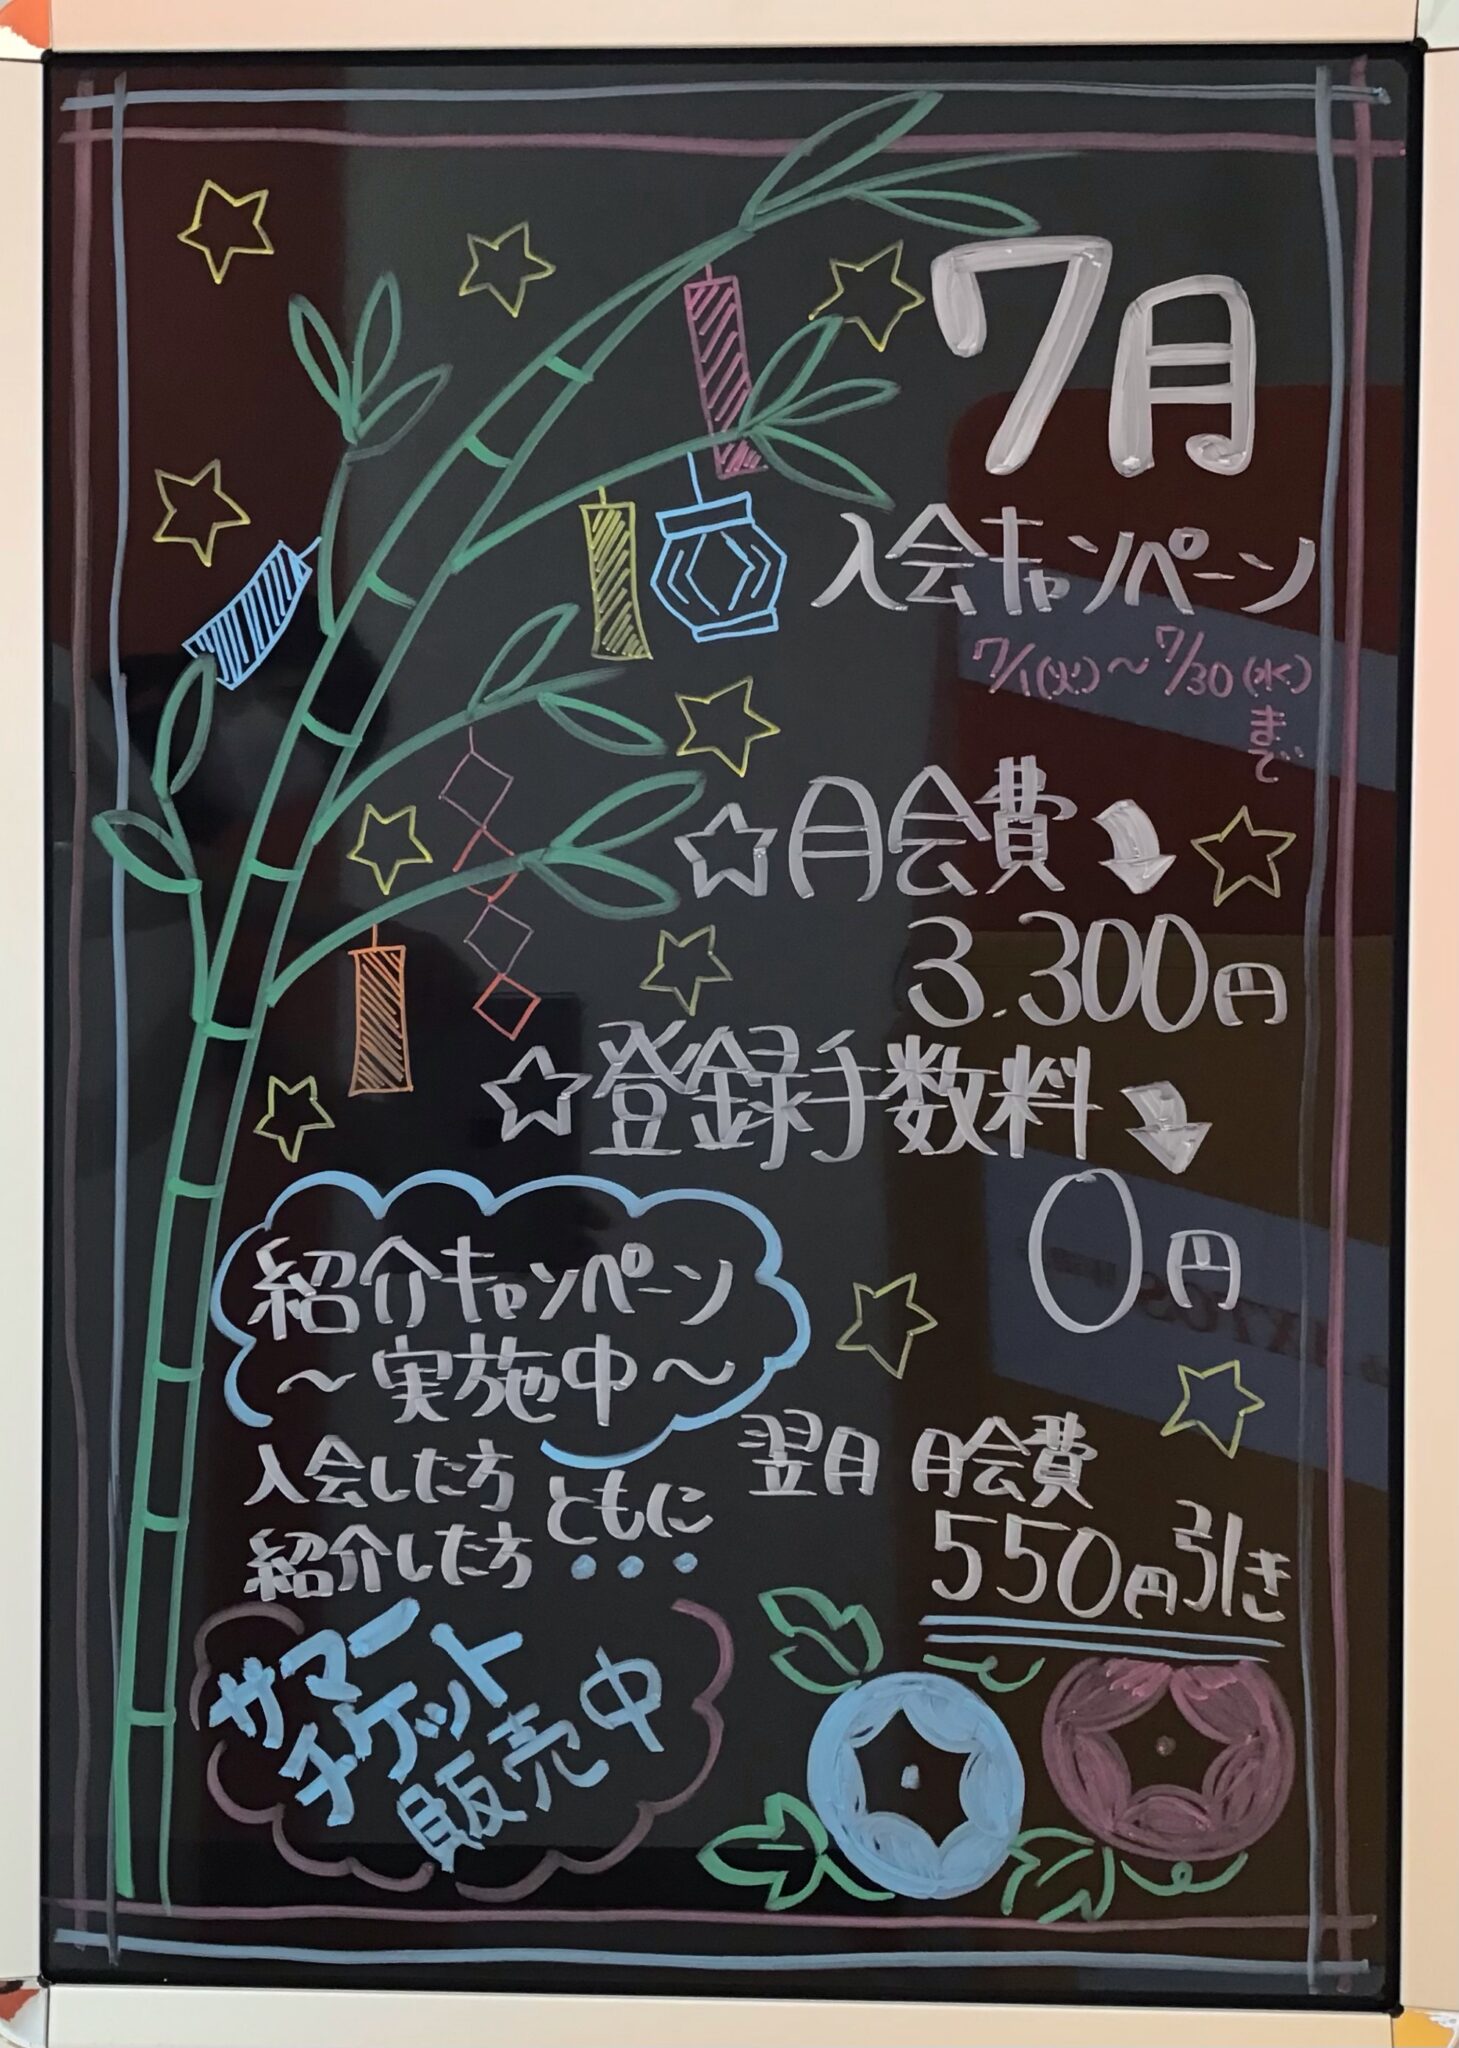 7月
入会キャンペーン
7/1(火)～7/30(水)
まで
☆月会費
3,300円
☆登録手数料
0円
紹介キャンペーン
～実施中～
入会した方
紹介した方
ともに
翌月 月会費
550円引き
サマー
チケット
販売中